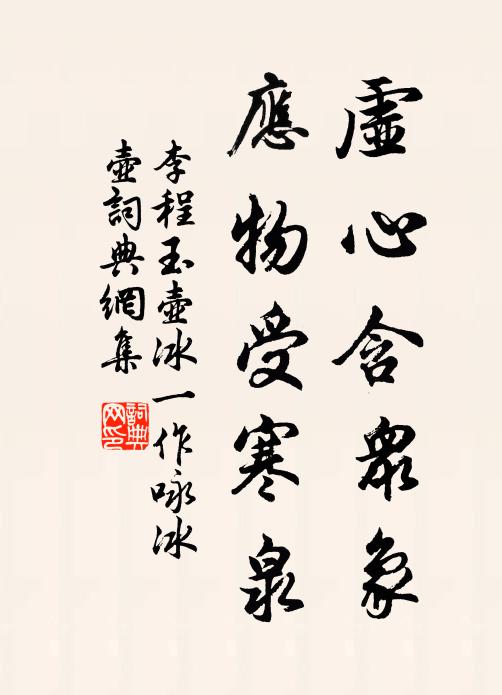 虛心含眾象
應物受寒泉
李程玉壺冰一作咏冰
壺詞典網集
詞典网印